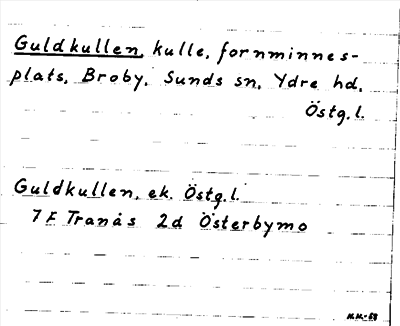 Guldkullen, kulle, fornminnes-
plats, Broby, Sunds sn, Ydre hd,
Östg.l.
Guldkullen, ek. Östg.l.
7F Tranås 2d Österbymo